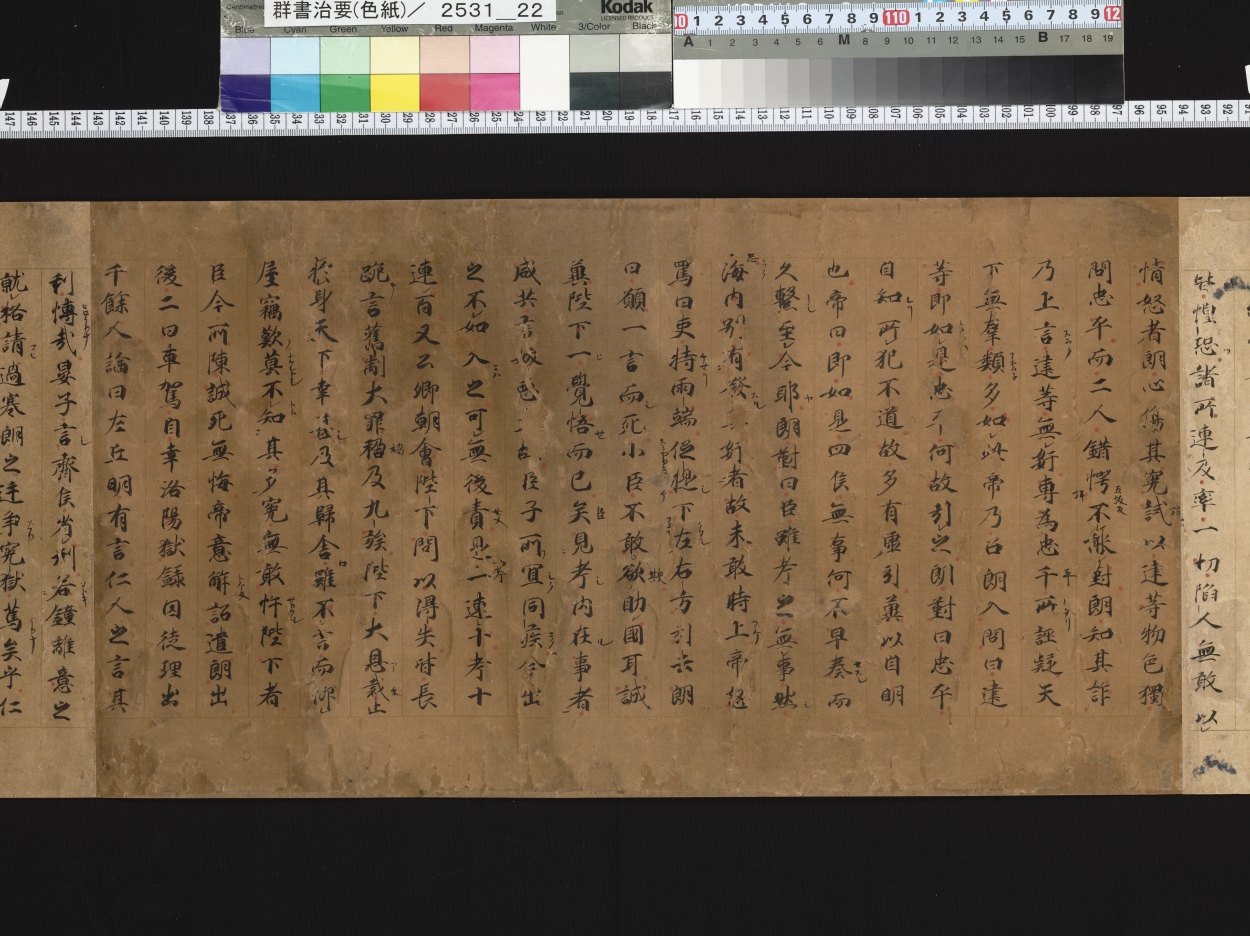 群書治要(色紙)／ 2531__22
Kodak
LICENSED PRODUCT
Centimetres
Blue Cyan Green Yellow Red Magenta White 3/Color Black
皆惶恐諸所連及率一切陷人無敢以
情恕者朗心傷其冤試以建等物色獨
問忠平而二人錯愕不能對朗知其詐
乃上言建等無姧專為忠平所誣疑天
下無辜類多如此帝乃召朗入問曰建
等即如是忠平何故引之朗對曰忠平
自知所犯不道故多有虛引冀以自明
也帝曰即如是四侯無事何不早奏而
久繫至今耶朗對曰臣雖考之無事然
海内別有發其姧者故未敢時上帝怒
罵曰吏持兩端促提下左右方引去朗
曰願一言而死小臣不敢欺欲助國耳誠
冀陛下一覺悟而已矣見考囚在事者
咸共言妖惡 故臣子所宜同疾今出
之不如入之可無後責是以考一連十考十
連百又公卿朝會陛下問以得失皆長
跪言舊制大罪禍及九族陛下大恩裁止
於身天下幸甚及其歸舍口雖不言而仰
屋竊歎莫不知其多冤無敢忤陛下者
臣今所陳誠死無悔帝意解詔遣朗出
後二日車駕自幸洛陽獄錄囚徒理出
千餘人論曰左丘明有言仁人之言其
利博哉晏子言齊侯省刑若鐘離意之
就格請過寒朗之廷爭冤獄篤矣乎仁